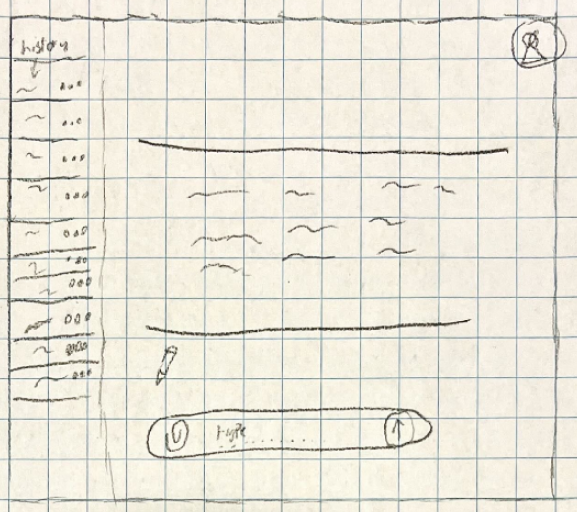 history
type.........